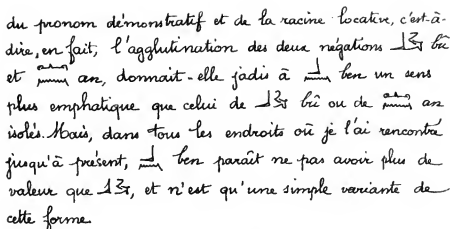 du pronom démonstratif et de la racine locative, c'est-à-
dire, en fait, l'agglutination des deux négations 𓃀𓅱 bû
et 𓂜𓈖 an, donnait-elle jadis à 𓃀𓈖 ben un sens
plus emphatique que celui de 𓃀𓅱 bû ou de 𓂜𓈖 an
isolés. Mais, dans tous les endroits où je l'ai rencontré
jusqu'à présent, 𓃀𓈖 ben paraît ne pas avoir plus de
valeur que 𓃀𓅱, et n'est qu'une simple variante de
cette forme.